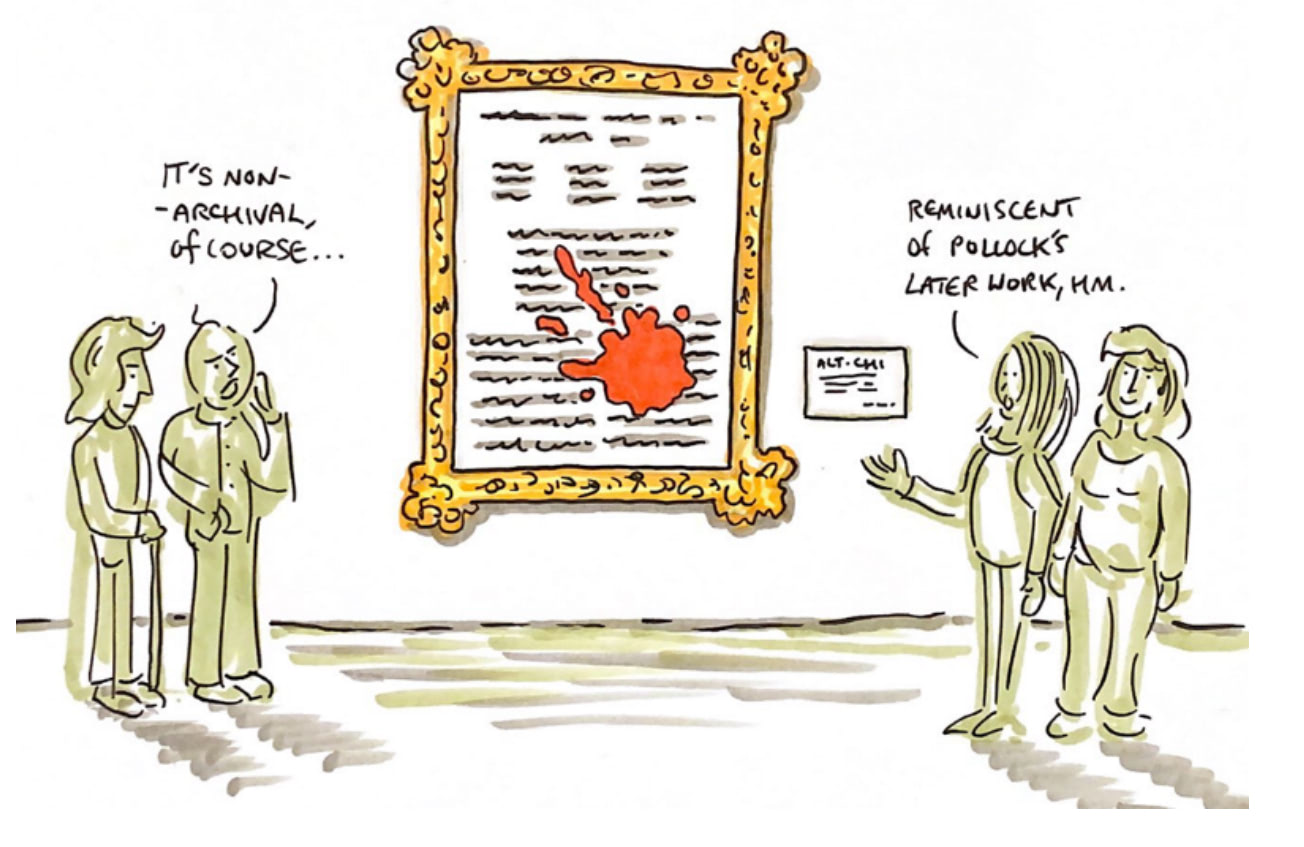 IT'S NON-
-ARCHIVAL,
Of COURSE...
REMINISCENT
Of POLLOCK'S
LATER WORK, HM.
ALT.CHI